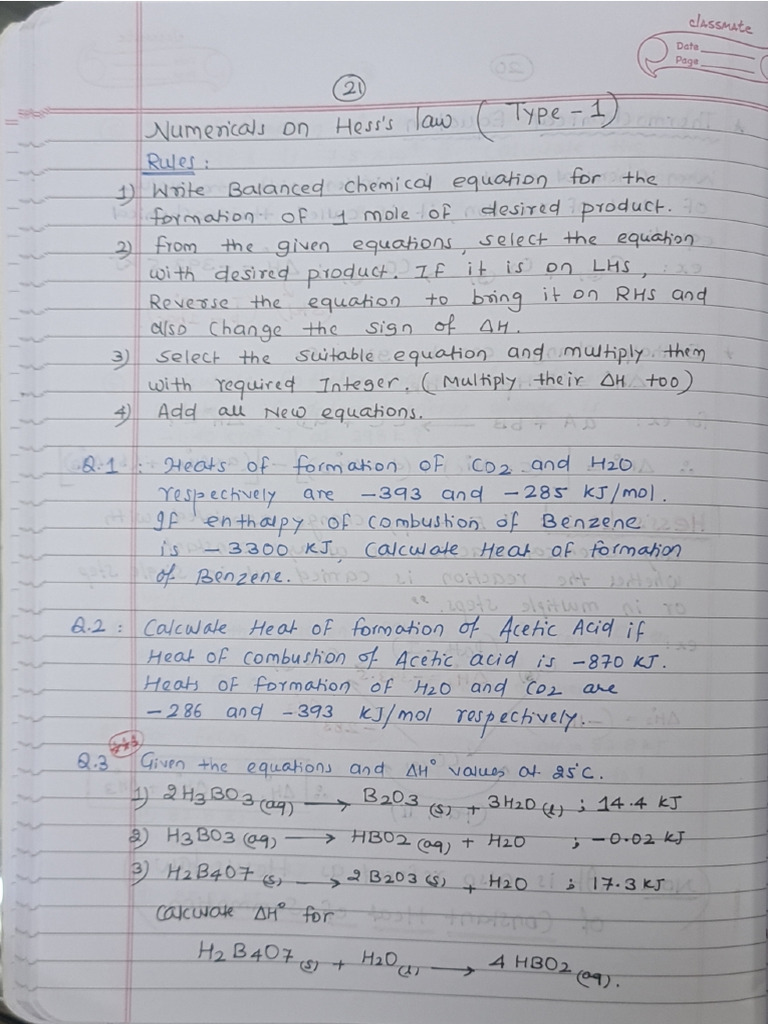 classmate
Date
Page
21
Numericals on Hess's law ( Type - 1)
Rules :
1) Write Balanced chemical equation for the
formation of 1 mole of desired product.
2) From the given equations, select the equation
with desired product. If it is on LHS,
Reverse the equation to bring it on RHS and
also change the sign of ΔH.
3) select the suitable equation and multiply them
with required Integer. (Multiply their ΔH too)
4) Add all New equations.
Q.1 : Heats of formation of CO2 and H2O
respectively are -393 and -285 KJ/mol.
If enthalpy of combustion of Benzene
is -3300 KJ, Calculate Heat of formation
of Benzene.
Q.2 : Calculate Heat of formation of Acetic Acid if
Heat of combustion of Acetic acid is -870 KJ.
Heats of formation of H2O and CO2 are
-286 and -393 KJ/mol respectively.
***
Q.3 Given the equations and ΔH° values at 25°C.
1) 2H3BO3 (aq) → B2O3 (s) + 3H2O (l) ; 14.4 KJ
2) H3BO3 (aq) → HBO2 (aq) + H2O ; -0.02 KJ
3) H2B4O7 (s) → 2B2O3 (s) + H2O ; 17.3 KJ
Calculate ΔH° for
H2B4O7 (s) + H2O (l) → 4 HBO2 (aq).